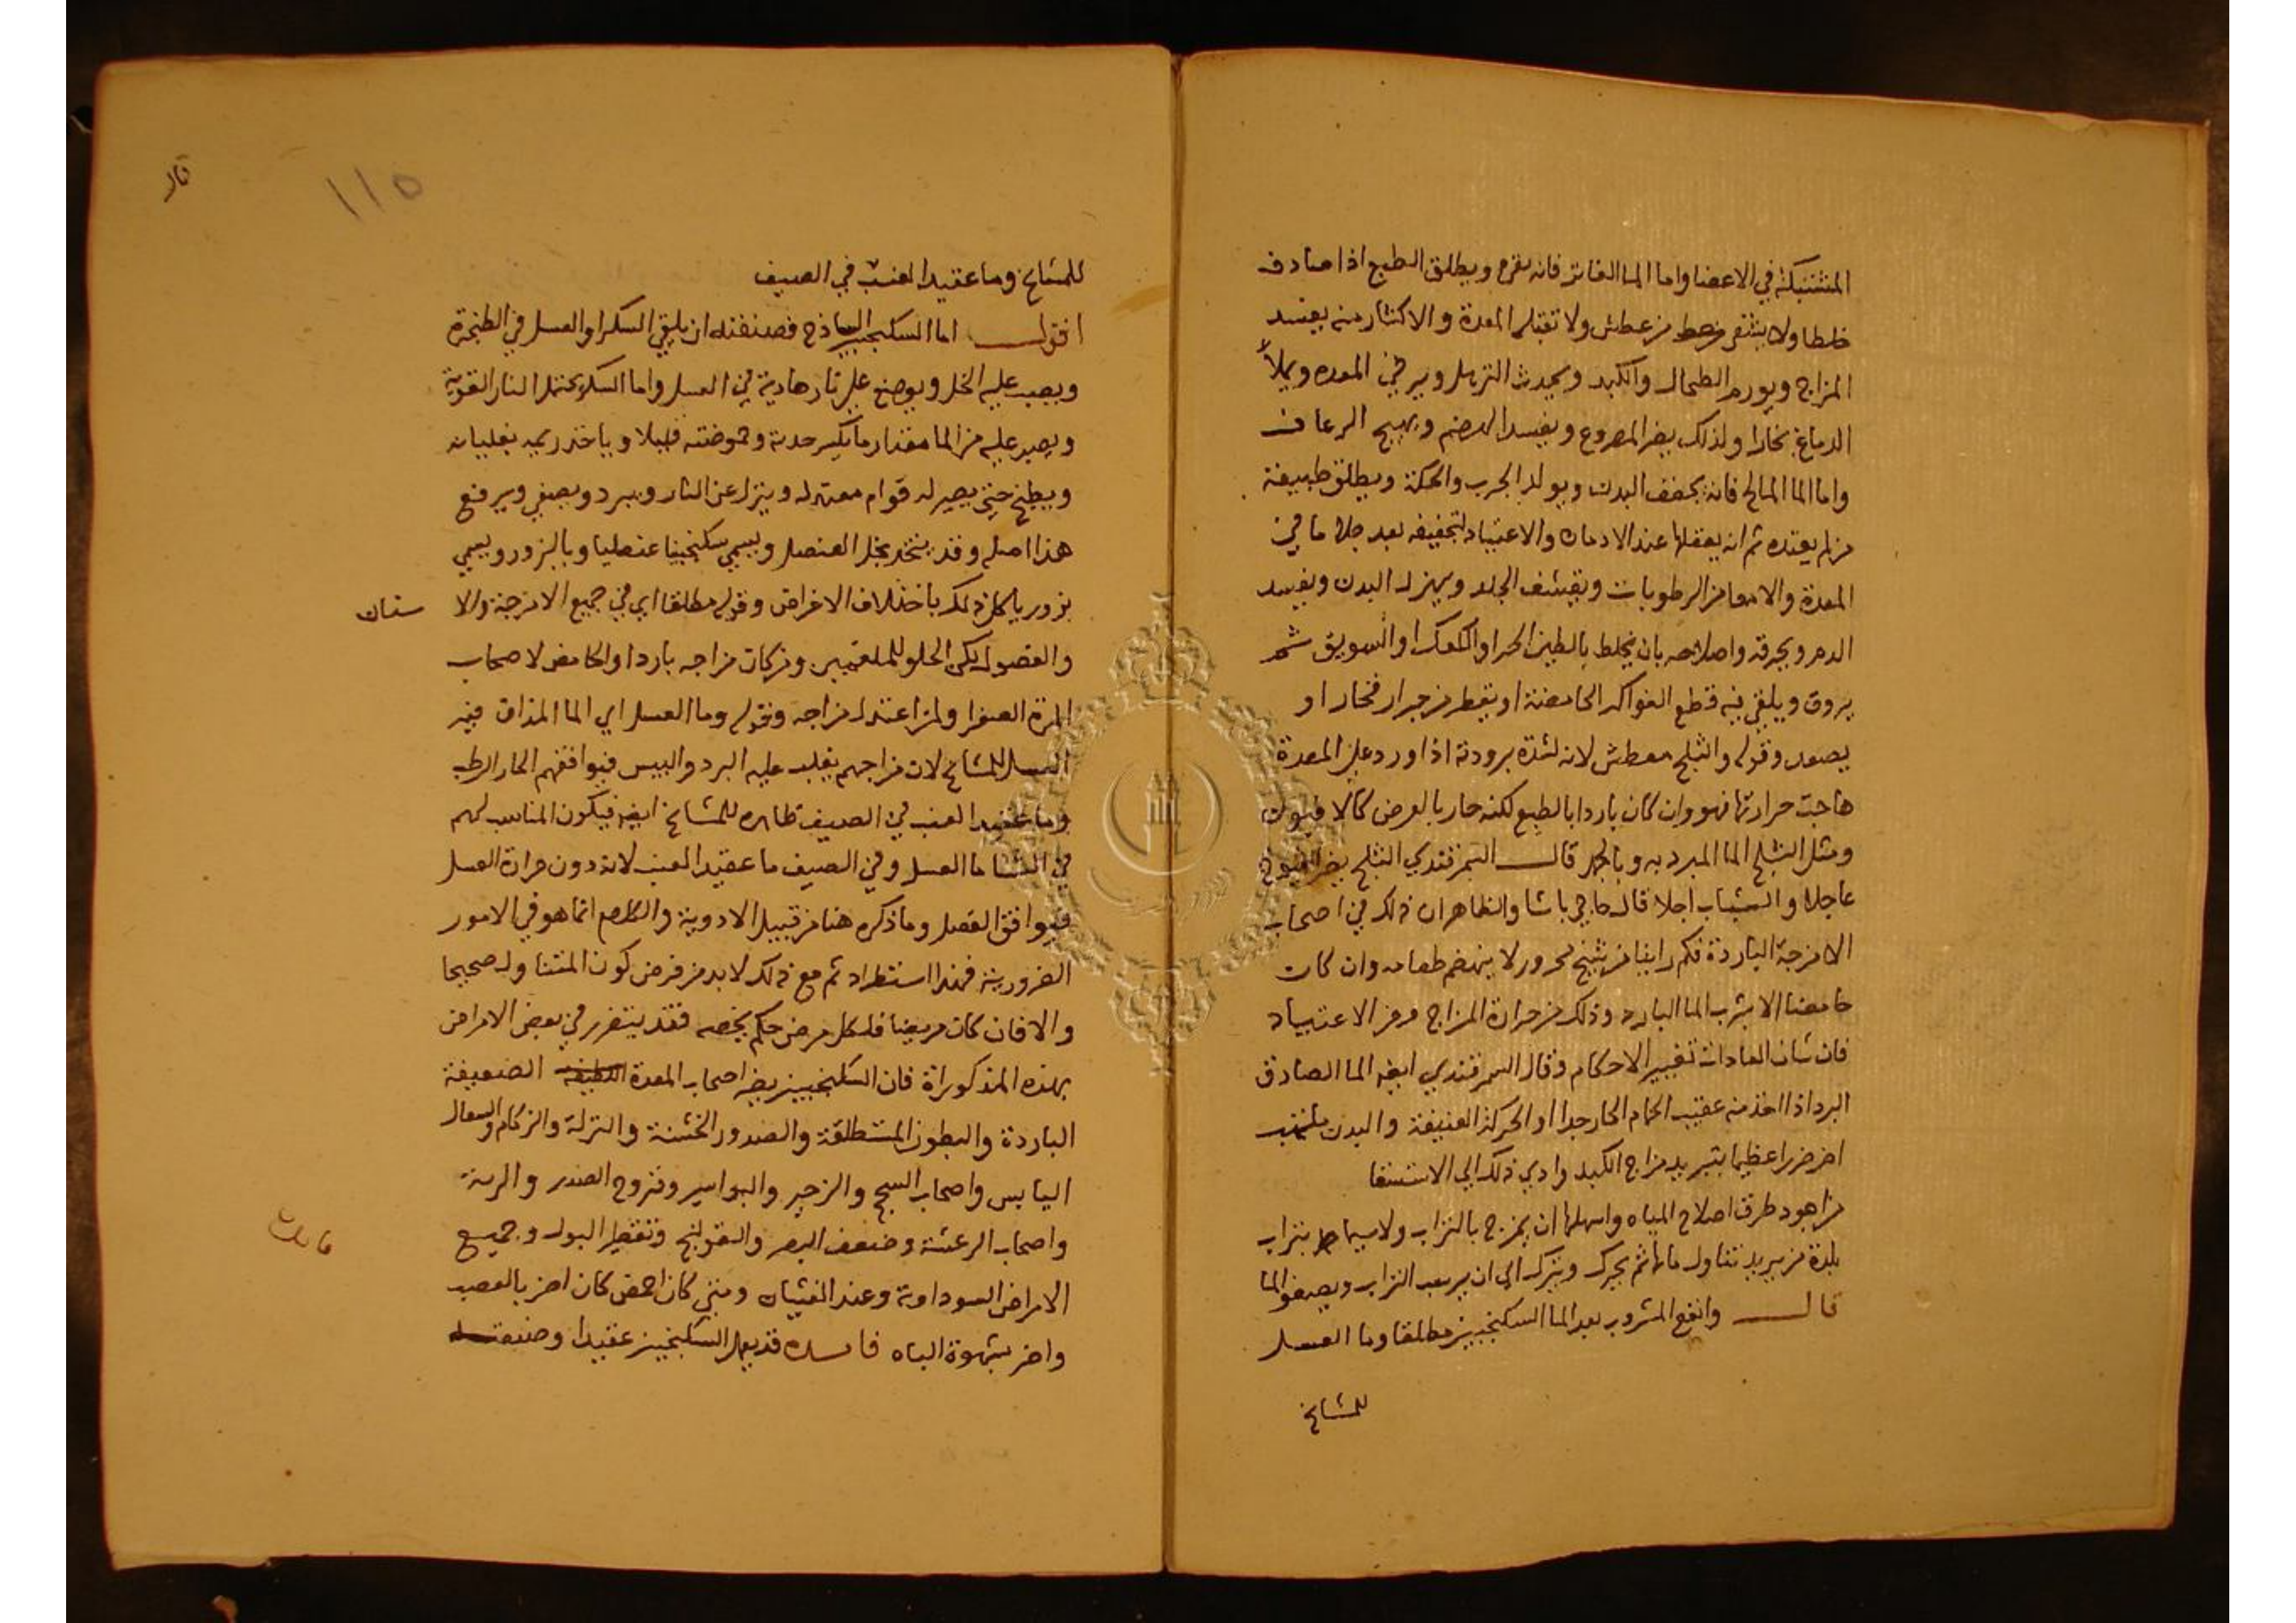 المشتبكة في الاعضا واما الما الفاتر فانه يفزع ويطلق الطبع اذا صادف
خلطا ولا يشفي من عطش ولا تقبله المعدة والاكثار منه يفسد
المزاج ويورم الطحال والكبد ويحدث الترهل ويرخي المعده ويملأ
الدماغ بخارا ولذلك يضر المصروع ويفسد الهضم ويهيج الرعاف
واما الما المالح فانه يجفف البدن ويولد الجرب والحكة ويطلق طبيعة
من لم يعتده ثم انه يعقلها عند الادمان والاعتياد لتجفيفه بعد جلا ما في
المعدة والامعا من الرطوبات ويقشف الجلد ويهزل البدن ويفسد
الدم ويحرقه واصلاحه بان يخلط بالطين الحر او الكعك او السويق ثم
يروق ويلقي فيه قطع الفواكه الحامضة او يقطر من جرار فخار او
يصعد وقوله والثلج معطش لانه لشدة برودته اذا ورد علي المعدة
هاجت حرارتها فهو وان كان باردا بالطبع لكنه حار بالعرض كالافيون
ومثل الثلج الما المبرد به وبالجمد قال السمرقندي الثلج يضر الشيوخ
عاجلا والشباب اجلا قال حاجي باشا والظاهر ان ذلك في اصحاب
الامزجة الباردة فكم راينا من شيخ محرور لا ينهضم طعامه وان كان
حامضا الا بشرب الما البارد وذلك من حرارة المزاج ومن الاعتياد
فان شان العادات تغيير الاحكام وقال السمرقندي ايضا الما الصادق
البرد اذا اخذ منه عقيب الحمام الحار جدا او الحركة العنيفة والبدن ملتهب
اضر ضررا عظيما بتبريد مزاج الكبد وادي ذلك الي الاستسقا
من اجود طرق اصلاح المياه واسهلها ان يمزج بالتراب ولا سيما بتراب
بلدة من يريد تناول مائها ثم يحرك ويترك الي ان يرسب التراب ويصفو الما
قال وانفع المشروب بعد الما السكنجبين مطلقا وما العسل
للمشايخ
قال
١١٥
للمشايخ وما عقيد العنب في الصيف
اقول اما السكنجبين الساذج فصنعته ان يلقي السكر او العسل في الطنجرة
ويصب عليه الخل ويوضع علي نار هادية في العسل واما السكر يحتمل النار القوية
ويصب عليه من الما مقدار ما يكسر حدته وحموضته قليلا وياخذ ريمه بغليانه
ويطبخ حتي يصير له قوام معتدل وينزل عن النار ويبرد ويصفي ويرفع
هذا اصله وقد يتخذ بخل العنصل ويسمي سكنجبينا عنصليا وبالبزور ويسمي
بزوريا كل ذلك باختلاف الاغراض وقوله مطلقا اي في جميع الامزجة والا سنان
والفصول لكن الحلو للبلغميين ومن كان مزاجه باردا والحامض لاصحاب
المرة الصفرا ولمن اعتدل مزاجه وقوله وما العسل اي الما المذاف فيه
العسل للمشايخ لان مزاجهم يغلب عليه البرد واليبس فيوافقهم الحار الرطب
وما عقيد العنب في الصيف ظاهره للمشايخ ايضا فيكون المناسب لهم
في الشتا ما العسل وفي الصيف ما عقيد العنب لانه دون حرارة العسل
فيوافق الفصل وما ذكره هنا من قبيل الادوية والكلام انما هو في الامور
الضرورية فهذا استطراد ثم مع ذلك لا بد من فرض كون المتناول صحيحا
والا فان كان مريضا فلكل مرض حكم يخصه فقد يتضرر في بعض الامراض
بهذه المذكوراة فان السكنجبين يضر اصحاب المعدة الضعيفة
الباردة والبطون المستطلقة والصدور الخشنة والنزلة والزكام والسعال
اليابس واصحاب السحج والزحير والبواسير وقروح الصدر والرية
واصحاب الرعشة وضعف البصر والقولنج وتقطير البول وجميع
الامراض السوداوية وعند الغشيان ومتي كان احمض كان اضر بالعصب
واضر بشهوة الباه فايده قد يعمل السكنجبين عقيدا وصنعته
فايده